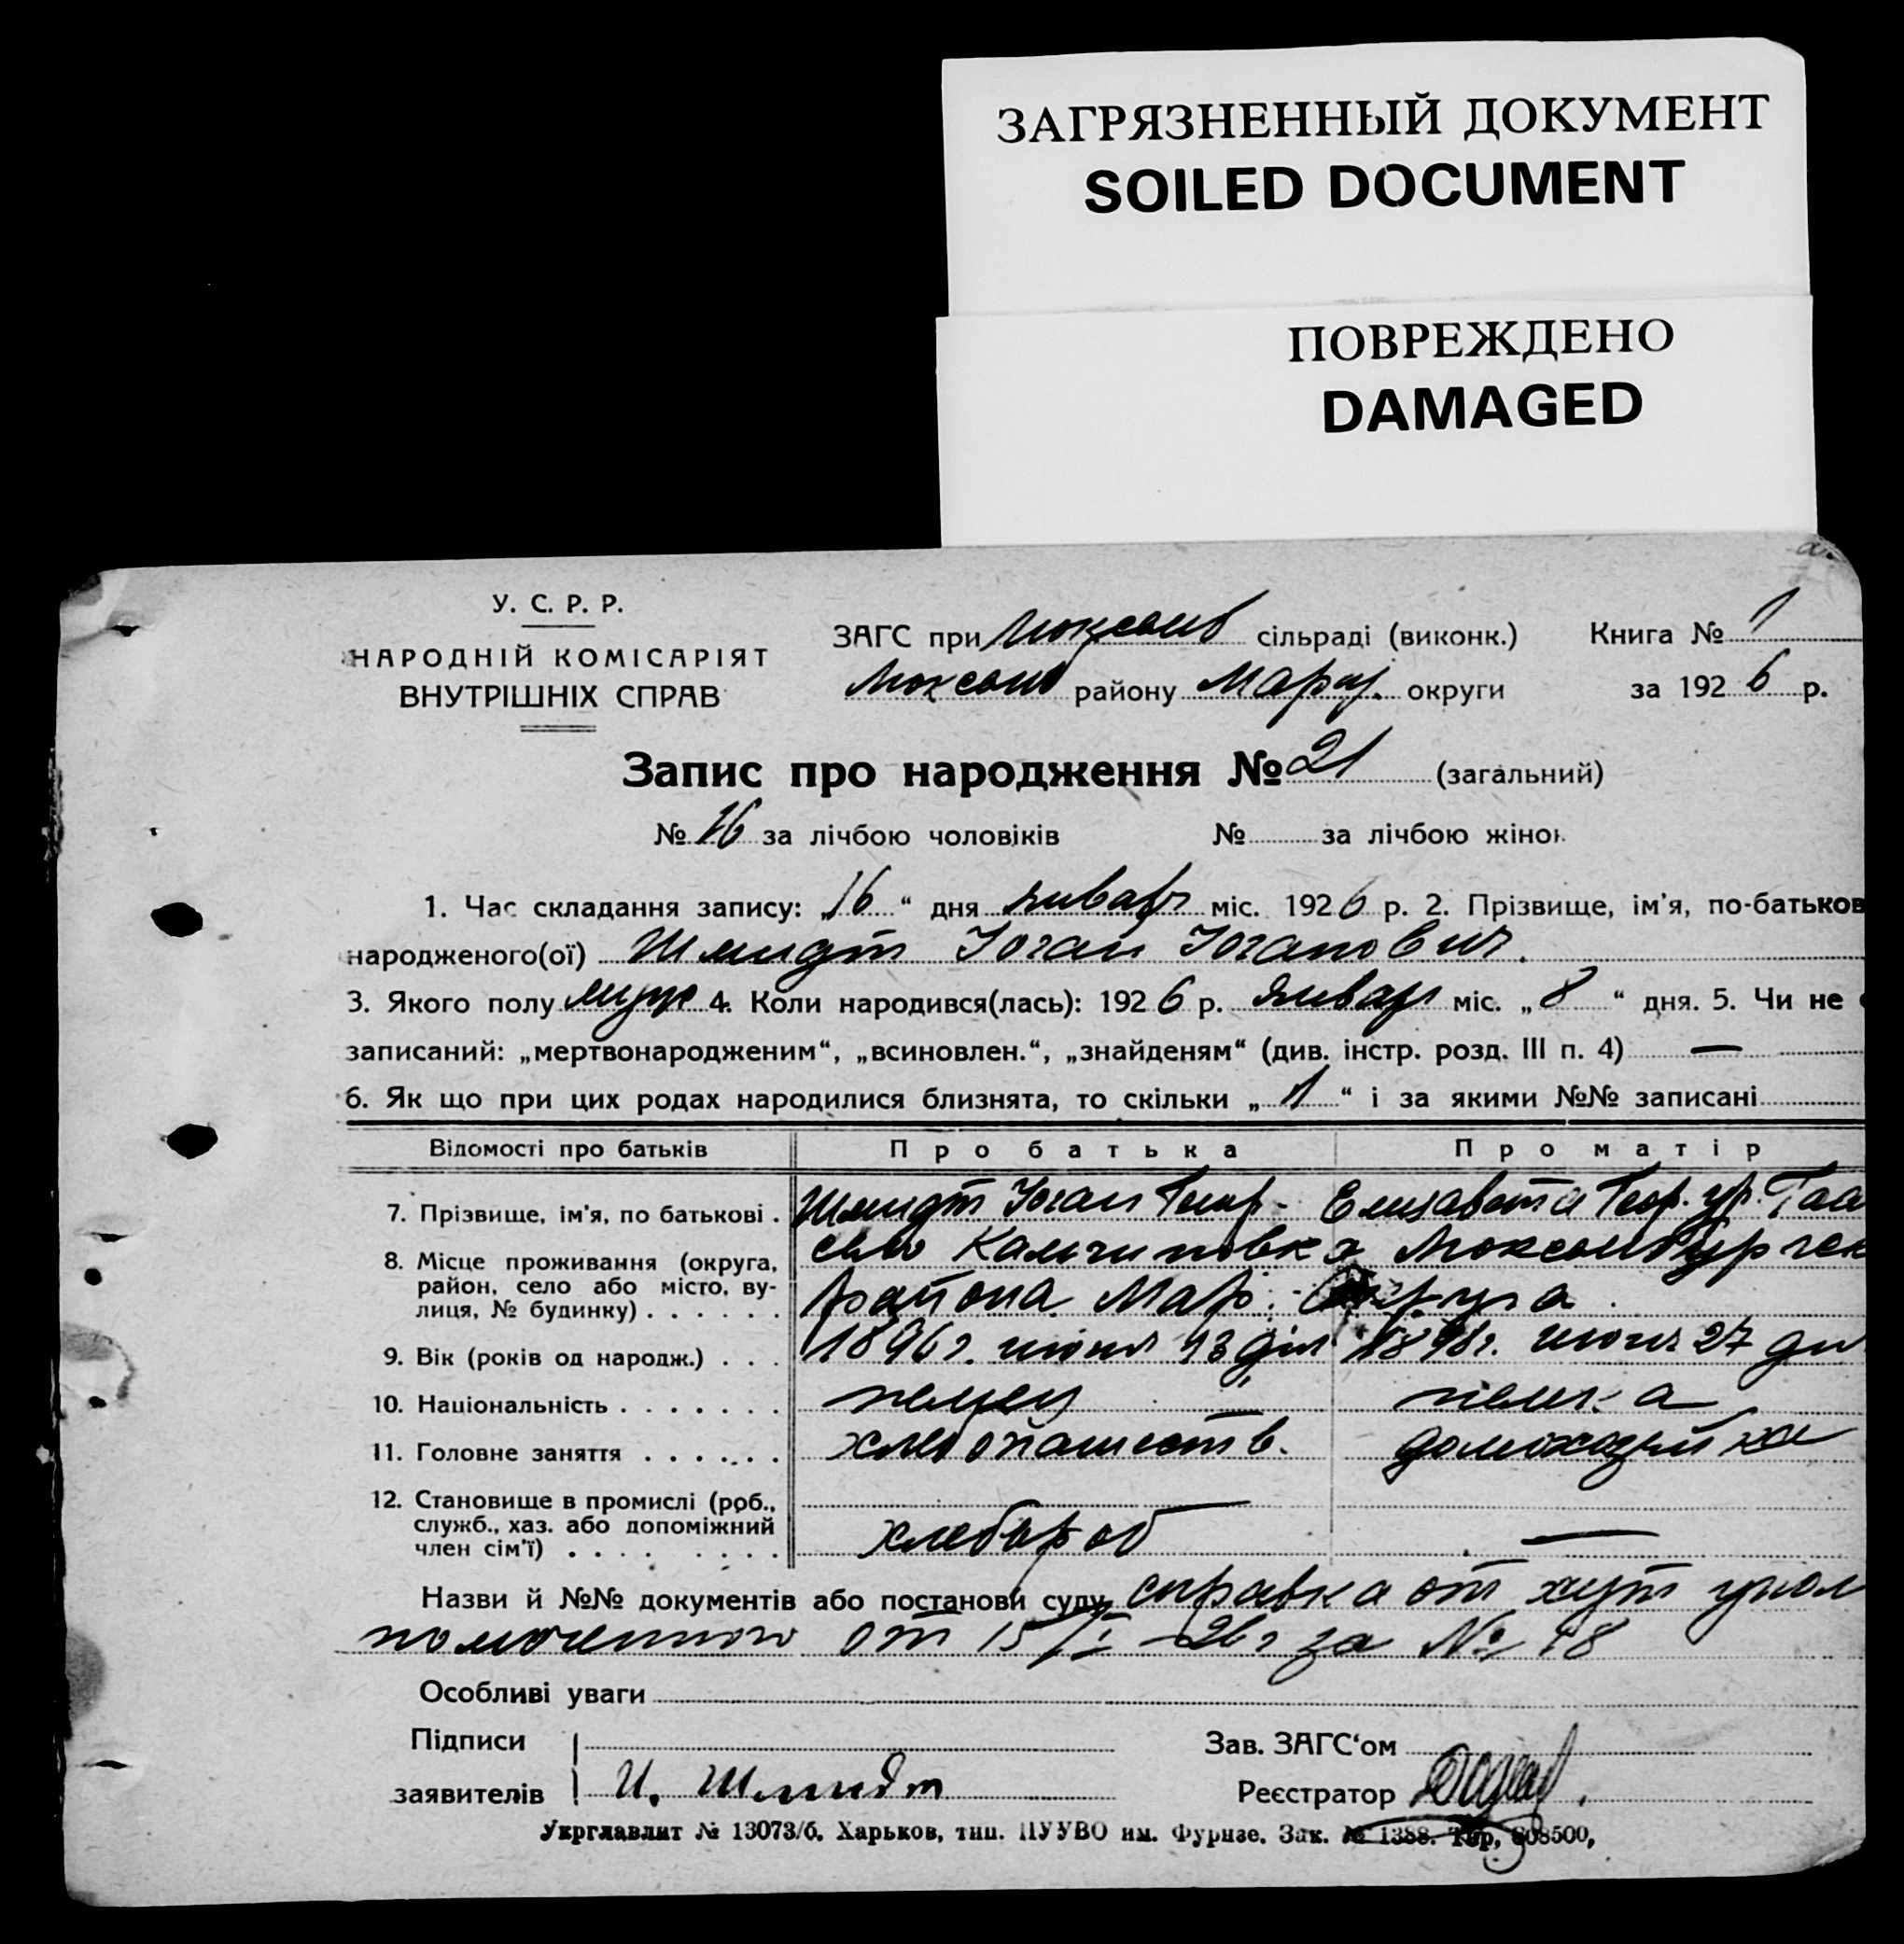 ЗАГРЯЗНЕННЫЙ ДОКУМЕНТ
SOILED DOCUMENT
ПОВРЕЖДЕНО
DAMAGED
У. С. Р. Р.
НАРОДНІЙ КОМІСАРІЯТ
ВНУТРІШНІХ СПРАВ
ЗАГС при Люксемб сільраді (виконк.) Книга № 1
Люксемб району Мариу. округи за 1926 р.
Запис про народження № 21 (загальний)
№ 16 за лічбою чоловіків № за лічбою жінок
1. Час складання запису: „16“ дня январь міс. 1926 р. 2. Прізвище, ім'я, по-батьков
народженого(ої) Шмидт Иоган Иоганович.
3. Якого полу муж 4. Коли народився(лась): 1926 р. январь міс. „8“ дня. 5. Чи не
записаний: „мертвонародженим“, „всиновлен.“, „знайденям“ (див. інстр. розд. III п. 4) —
6. Як що при цих родах народилися близнята, то скільки „1“ і за якими №№ записані
Відомості про батьків Про батька Про матір
7. Прізвище, ім'я, по батькові . Шмидт Иоган Геор- Елизавета Геор. ур. Гаа
8. Місце проживання (округа, село Кальчиновка Люксембургск
район, село або місто, ву-
лиця, № будинку) . . . . . . района Мар. Округа.
9. Вік (років од народж.) . . . 1896 г. июня 13 дня 1898 г. июня 27 дн
10. Національність . . . . . . . немец немка
11. Головне заняття . . . . . . хлебопашеств. домохозяйка
12. Становище в промислі (роб.,
служб., хаз. або допоміжний
член сім'ї) . . . . . . . . хлебороб —
Назви й №№ документів або постанови суду справка от хут упол
номоченного от 15/I-26 г за № 48
Особливі уваги
Підписи Зав. ЗАГС'ом
заявителів И. Шмидт Реєстратор
Укрглавлит № 13073/б. Харьков, тип. ПУУВО им. Фрунзе. Зак. № 1388. Тир, 808500,